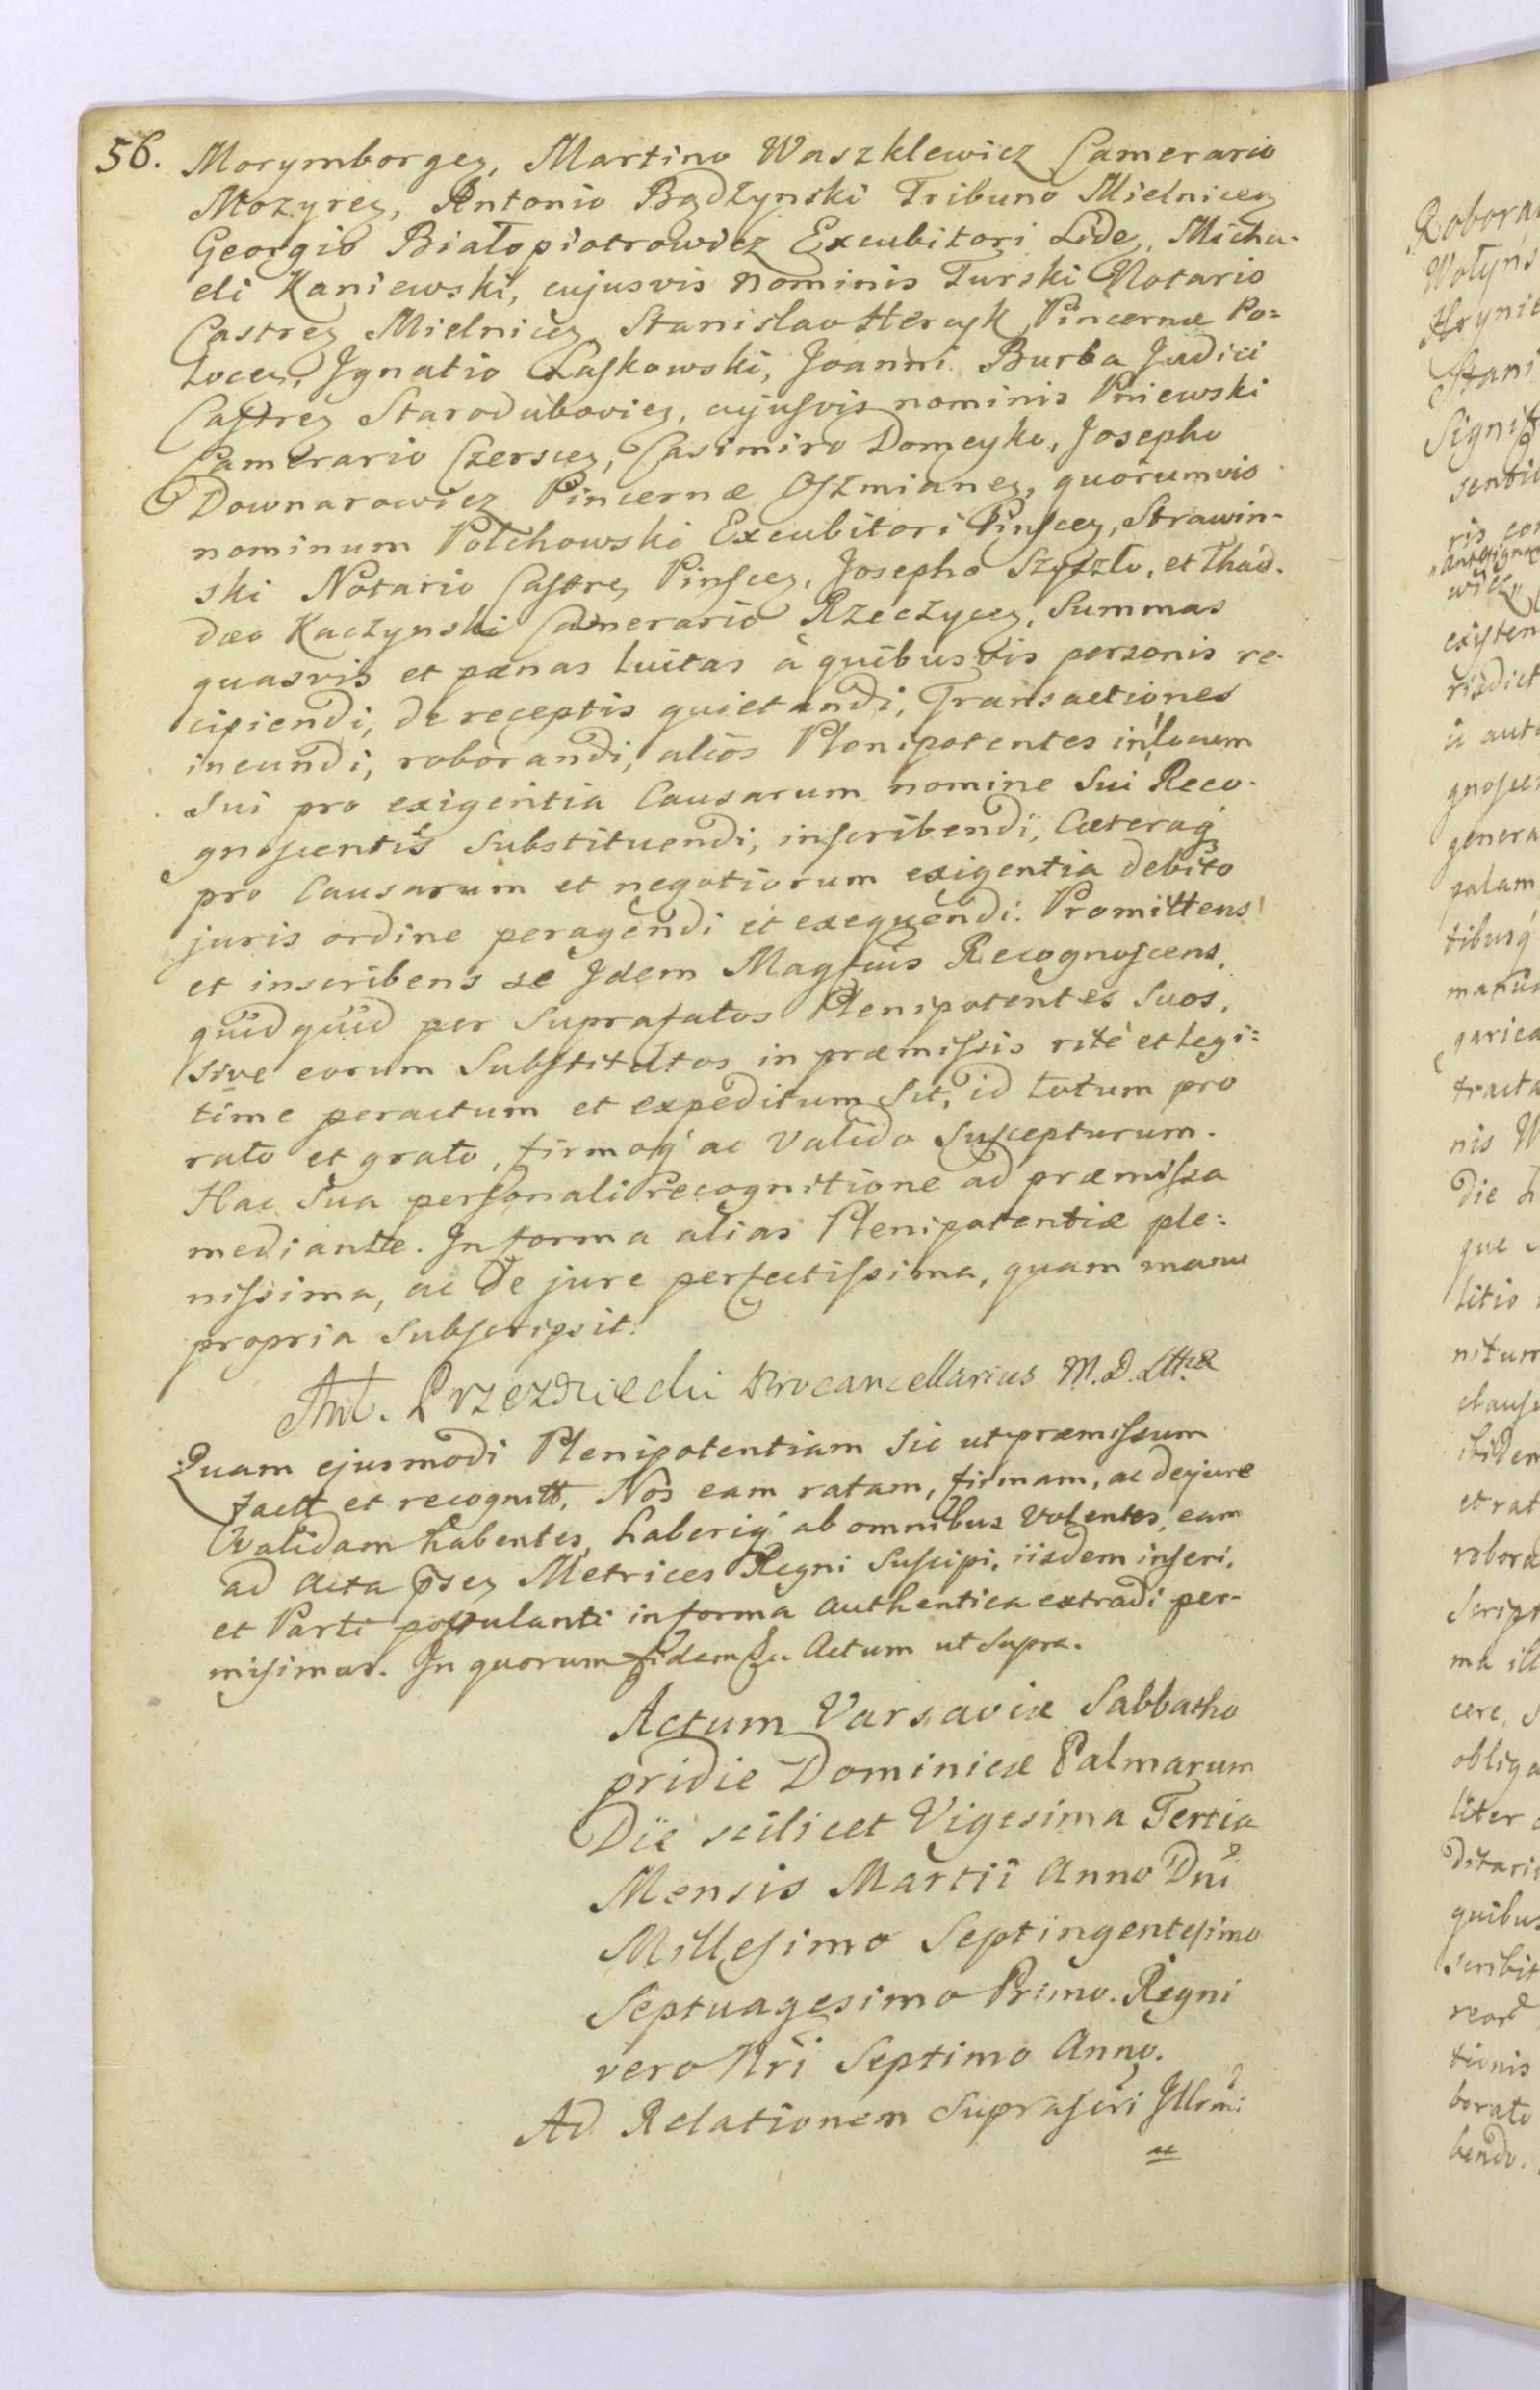 56. Morymborgeg, Martino Waszklewicz Camerario
Mozyreg, Antonio Bądzynski Tribuno Mielniceg
Georgio Białopiotrowicz Excubitori Lide, Micha-
eli Kaniewski, cujusvis nominis Turski Notario
Castreg Mielniceg Stanislao Hercyk Pincernæ Po=
loceg, Ignatio Laskowski, Joanni Burba Judici
Castreg Starodubovieg, cujusvis nominis Pniewski
Camerario Czersceg, Casimiro Domeyko, Josepho
Downarowicz Pincernæ Oszmianeg, quorumvis
nominum Polchowski Excubitori Pinsceg, Strawin-
ski Notario Castreg Pinsceg, Josepho Szyszło, et Thad-
dæo Kaczynski Camerario Rzeczyceg, Summas
quasvis et pænas luitas à quibusvis personis re-
cipiendi, de receptis quietandi, Transactiones
ineundi, roborandi, alios Plenipotentes in locum
Sui pro exigentia Causarum nomine Sui Reco-
gnoscentis Substituendi, inscribendi, Cæteraq
pro Causarum et negotiorum exigentia debito
juris ordine peragendi et exequendi. Promittens
et inscribens se Idem Magfcus Recognoscens,
quidquid per Suprafatos Plenipotentes Suos,
sive eorum Substitutos in præmissis ritè et legi=
time peractum et expeditum Sit, id totum pro
rato et grato, firmoq ac valido Suscepturum.
Hac Sua personali recognitione ad præmissa
mediante. In forma alias Plenipotentiæ ple=
nissima, ac de jure perfectissima, quam manu
propria Subscripsit.
Ant. Przezdziecki Procancellarius M. D. Ltt.æ
Quam ejusmodi Plenipotentiam Sic ut præmissum
factt et recognitt, Nos eam ratam, firmam, ac de jure
validam habentes, haberiq ab omnibus volentes, eam
ad Acta p̄seg Metrices Regni Suscipi, iisdem inseri,
et Parti postulanti in forma authentica extradi per-
misimus. In quorum fidem Actum ut Supra.
Actum Varsaviæ Sabbatho
pridie Dominicæ Palmarum
Die scilicet Vigesima Tertia
Mensis Martii Anno Dni
Millesimo Septingentesimo
Septuagesimo Primo. Regni
vero Nri Septimo Anno.
Ad Relationem Suprascri Illrmi